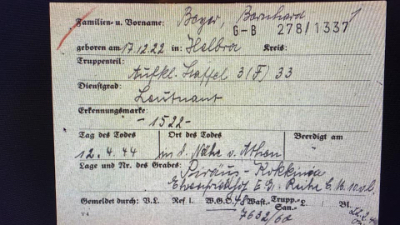 Familien- u. Vorname: Beyer, Bernhard
G-B 278/1337
geboren am 17.12.22 in: Helbra Kreis:
Truppenteil: Aufkl. Staffel 3 (F) 33
Dienstgrad: Leutnant
Erkennungsmarke: -1522-
Tag des Todes Ort des Todes Beerdigt am
12.4.44 in d. Nähe v. Athen
Lage und Nr. des Grabes: Piräus-Kokkinia
Ehrenfriedhof E.G. Reihe
Gemeldet durch: V.L. Ref 1. W.G.O. Wast. Trupp. San. L. Bl.
7632/60